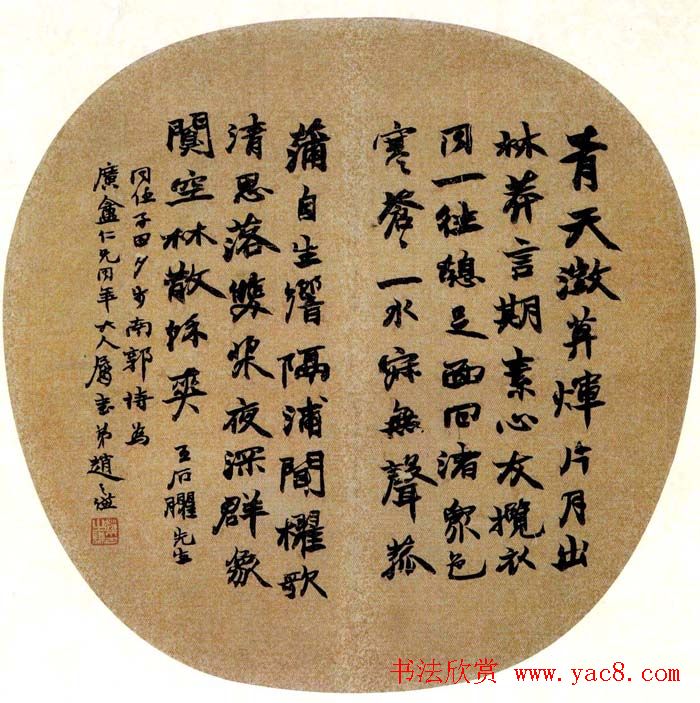 青天澂煇片月出
林莽言期素心友攬衣
同一往憩足面回渚眾色
寒蒼〻一水寂無聲菰
蒲自生響隔浦聞櫂歌
清思落雙槳夜深群象
闃空林散餘爽 王石臞先生
同任子田夕步南郭詩為
廣盦仁兄同年大人屬書弟趙之謙
书法欣赏 www.yac8.com